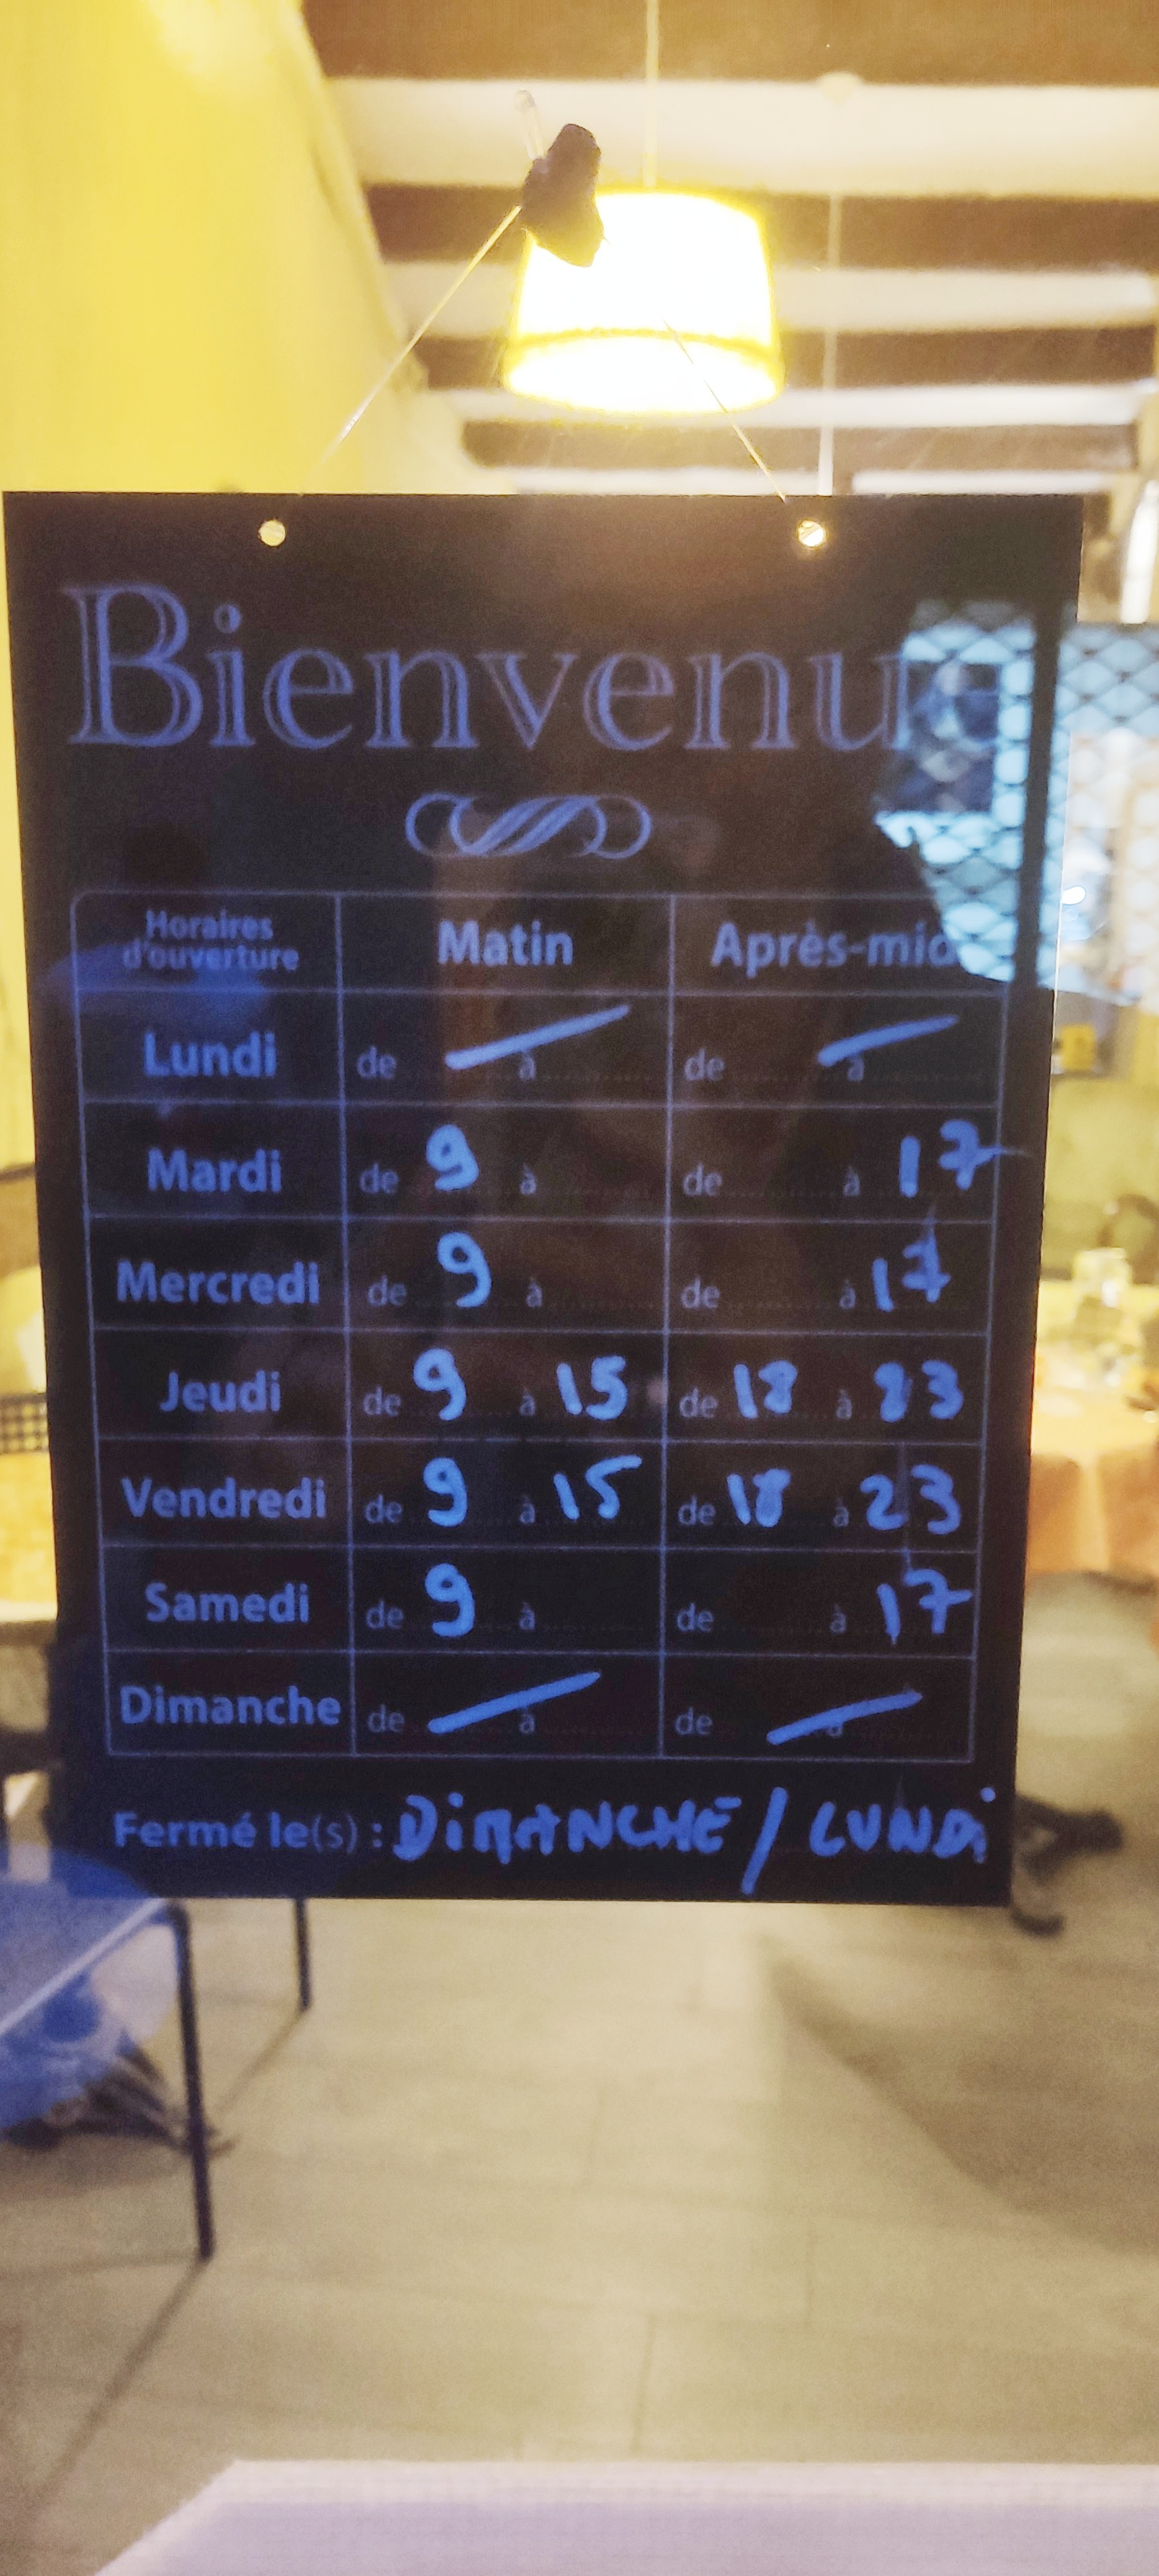 Bienvenue
Horaires d'ouverture Matin Après-midi
Lundi de — à de — à
Mardi de 9 à de à 17
Mercredi de 9 à de à 17
Jeudi de 9 à 15 de 18 à 23
Vendredi de 9 à 15 de 18 à 23
Samedi de 9 à de à 17
Dimanche de — à de — à
Fermé le(s) : DiMANCHE / LUNDi